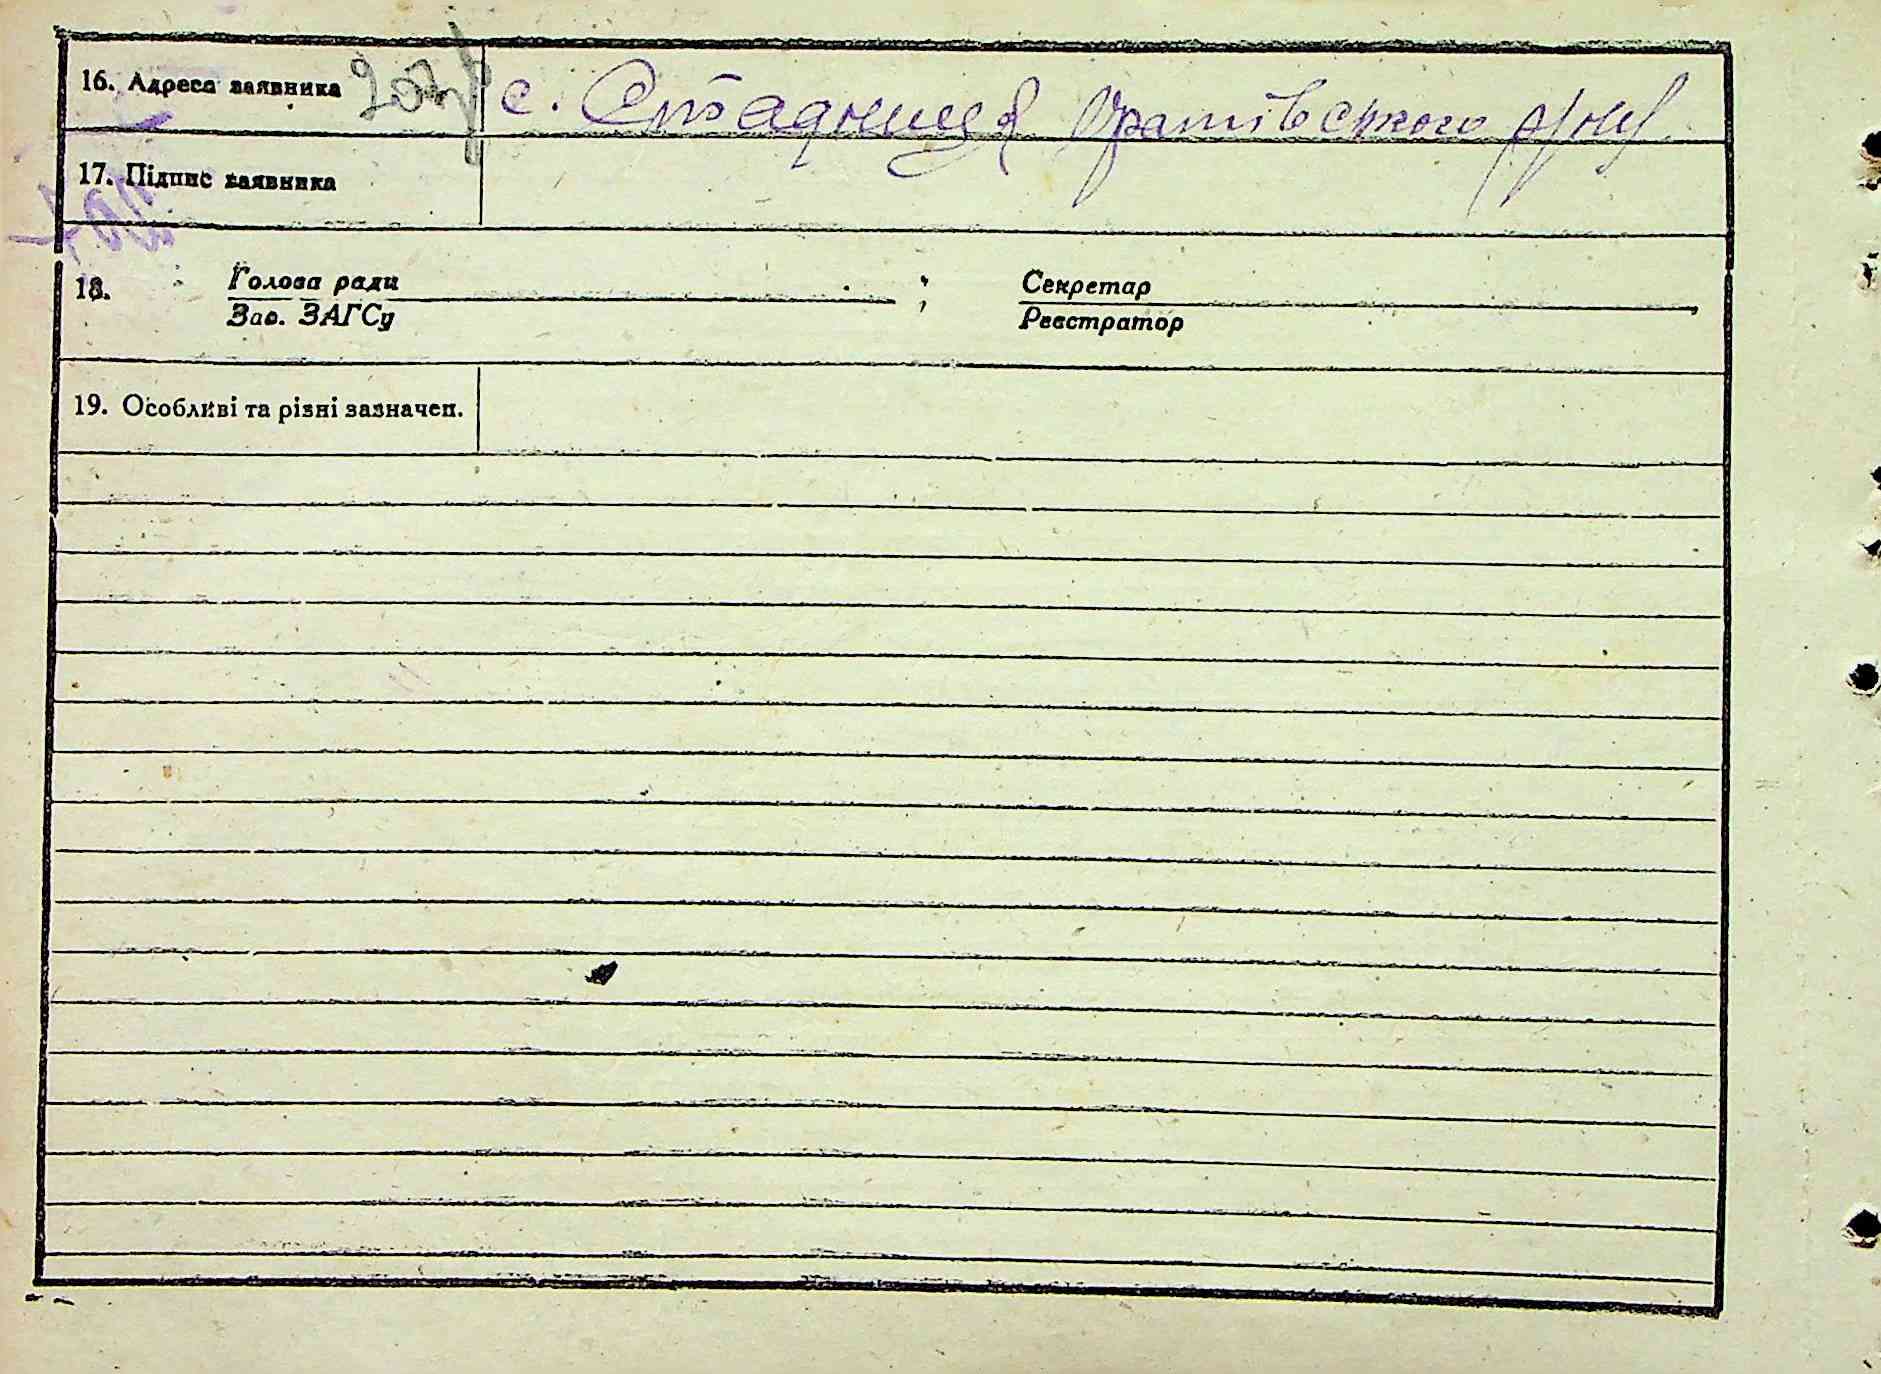 16. Адреса заявника с. Стадниця Оратівського р/ну
17. Підпис заявника
18. Голова ради ; Секретар ,
Зав. ЗАГСу Реєстратор
19. Особливі та різні зазначен.